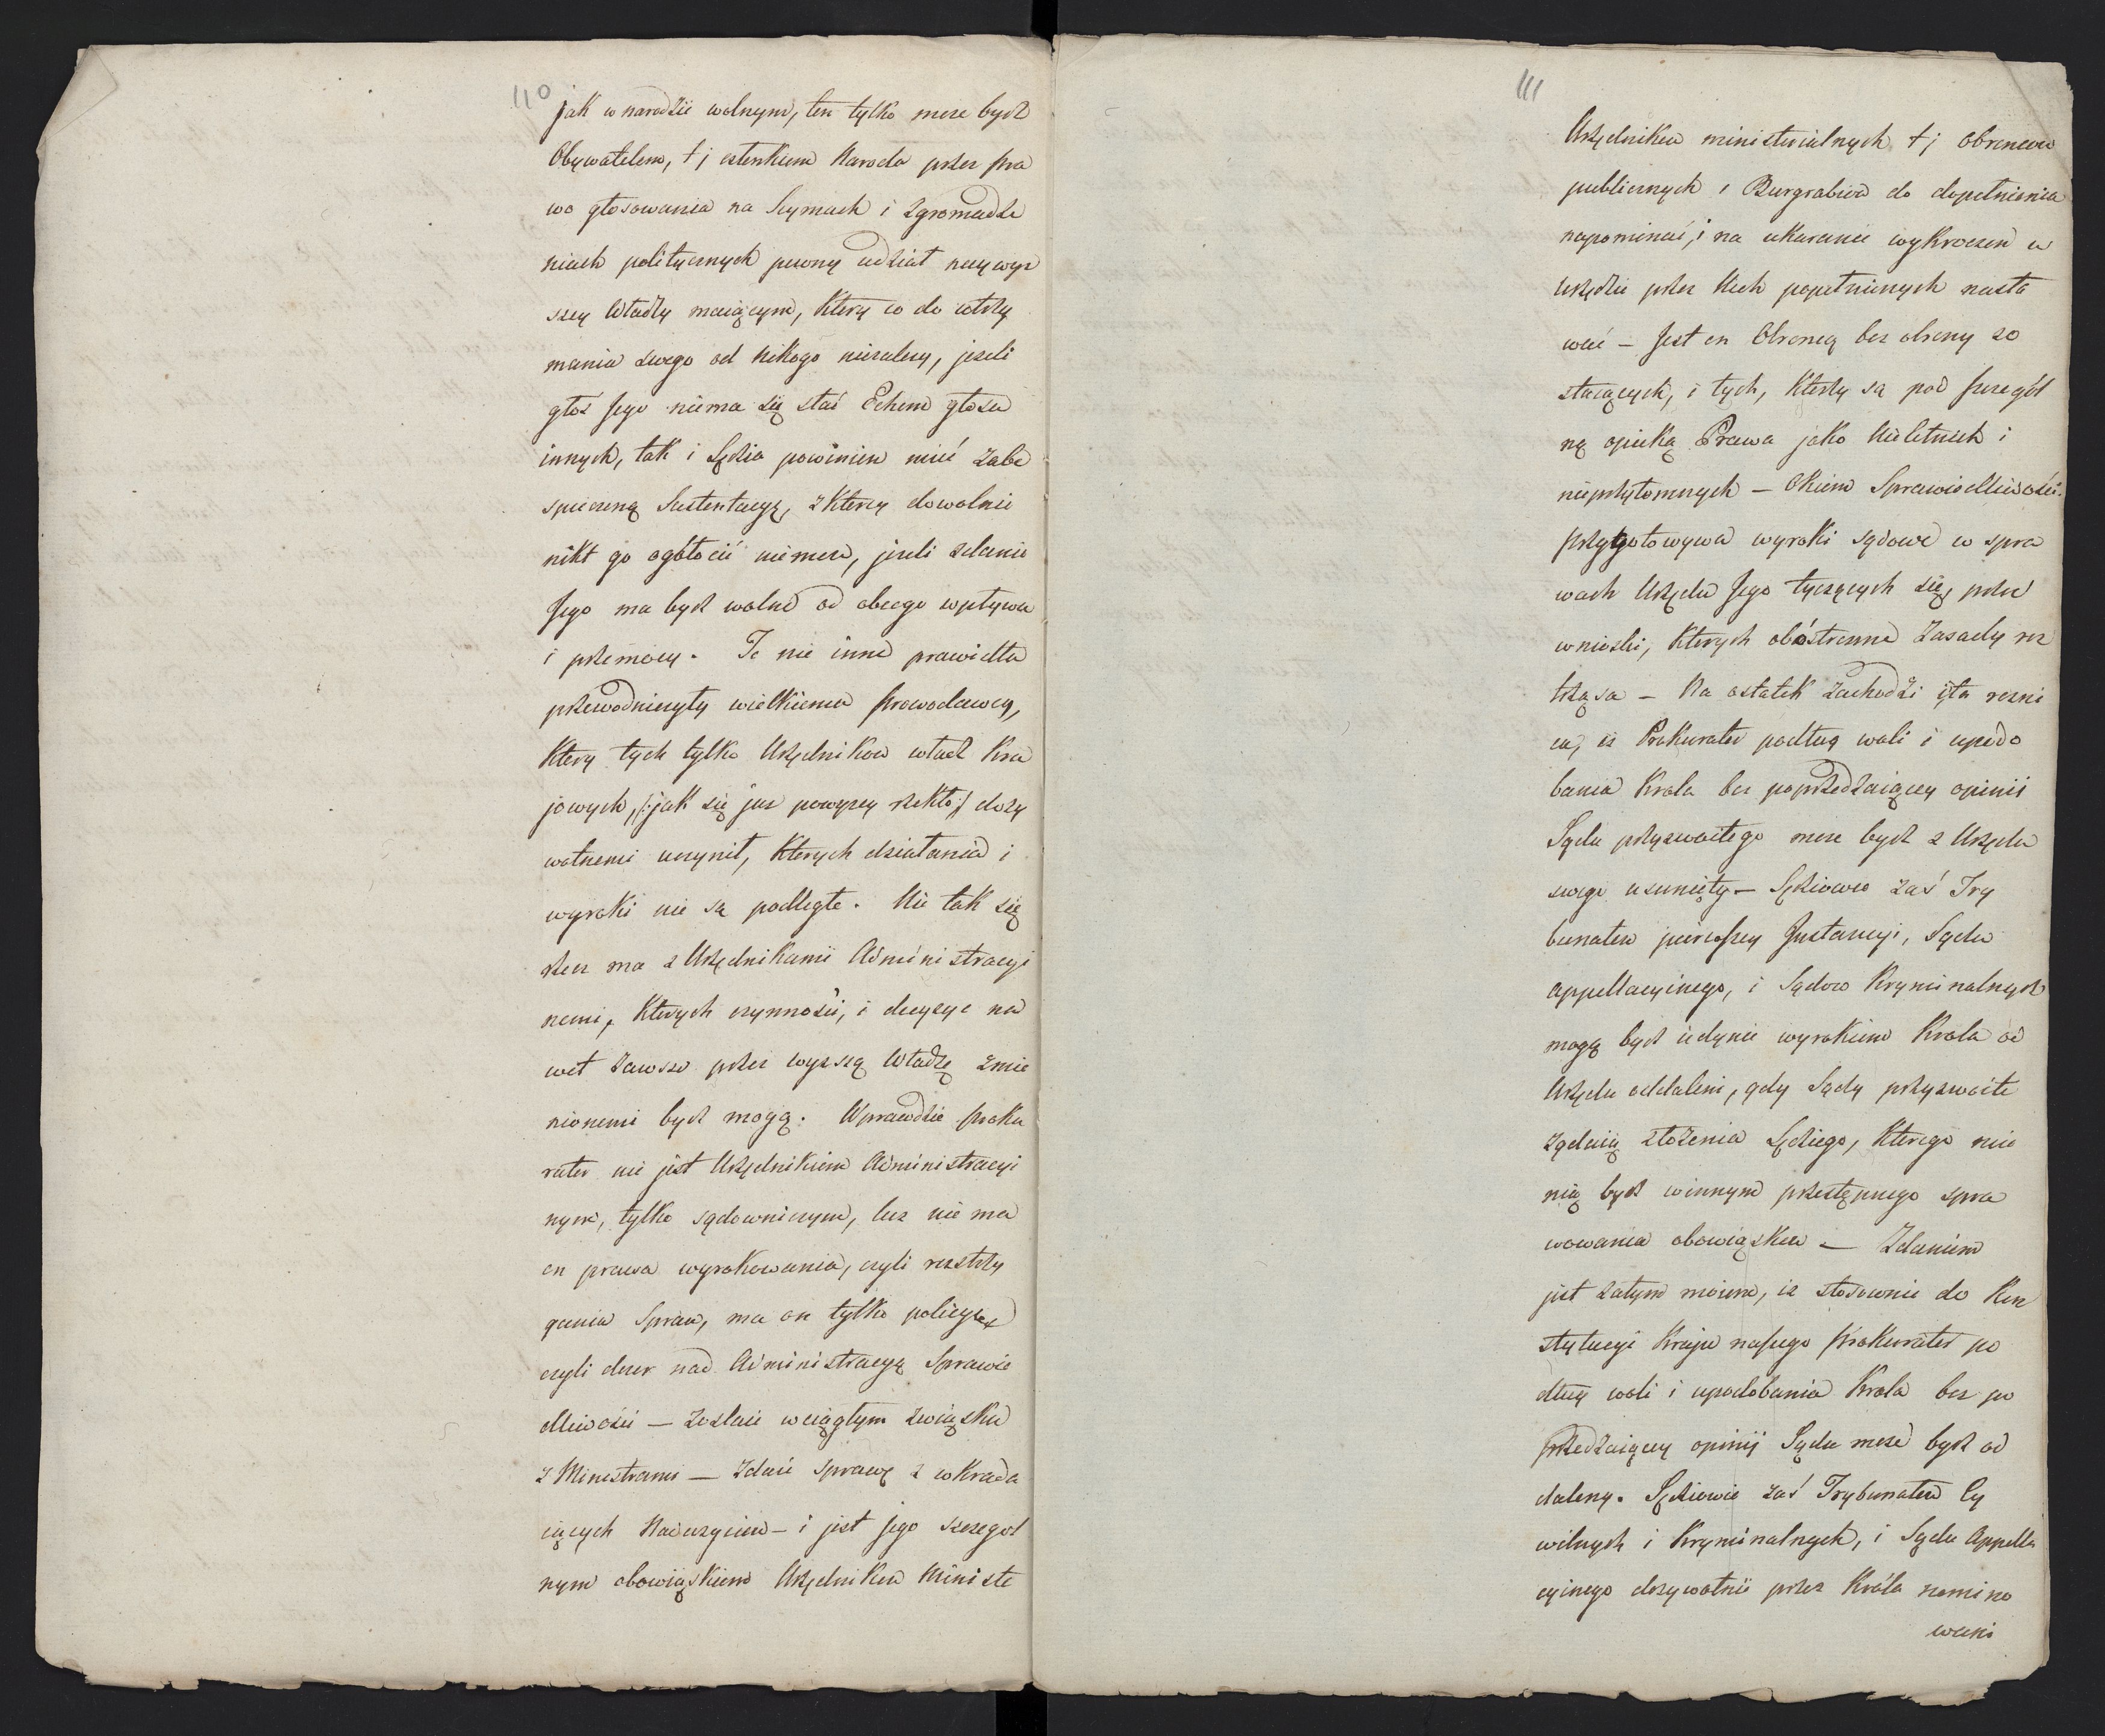 110
jak w narodzie wolnym, ten tylko może bydź
Obywatelem, tj członkiem Narodu przez pra
wo głosowania na Seymach i zgromadze
niach politycznych pewny udział naywyż
szey Władzy maiącym, który co do utrzy
mania swego od nikogo niezależy, jeżeli
głos Jego niema się stać Echem głosu
innych, tak i Sędzia powinien mieć zabe
spieczoną Sustentacyą, z ktorey dowolnie
nikt go ogołocić niemoże, jeżeli zdanie
Jego ma bydź wolne od obcego wpływu
i przemocy. Te nie inne prawidła
przewodniczyły wielkiemu prawodawcy,
ktory tych tylko Urzędnikow władz kra
jowych, /:jak się już powyżey rzekło:/ doży
wotnemi uczynił, ktorych działania i
wyroki nie są podległe. Nie tak się
rzecz ma z Urzędnikami Administracyi
nemi, ktorych czynności, i decyzye na
wet zawsze przez wyższą Władzę zmie
nionemi bydź mogą. Wprawdzie proku
rator nie jest Urzędnikiem Administracyi
nym, tylko sądowniczym, lecz nie ma
on prawa wyrokowania, czyli rozstrzy
gania Spraw, ma on tylko policyą
czyli dozor nad Administracyą Sprawie
dliwości — Zostaie w ciągłym związku
z Ministrami — Zdaie sprawę z wkrada
iących Nadużyciow — i jest Jego szczegol
nym obowiązkiem Urzędnikow Ministe
111
Urzędnikow ministerialnych tj Obroncow
publicznych i Burgrabiow do dopełnienia
napominać, i na ukaranie wykroczeń w
Urzędzie przez Nich popełnionych nasta
wać — Jest on Obroncą bez obrony zo
staiących, i tych, ktorzy są pod szczegól
ną opieką Prawa jako Nieletnich i
nieprzytomnych — Okiem Sprawiedliwości.
przygotowywa wyroki sądowe w spra
wach Urzędu Jego tyczących się, przez
wnioski, ktorych obóstronne Zasady roz
trząsa — Na ostatek zachodzi i ta rożni
ca, iż Prokurator podług woli i upodo
bania Krola bez poprzedzaiącey opinii
Sądu przyzwoitego może bydź z Urzędu
swego usunięty — Sędziowie zaś Try
bunałow pierwszey Instancyi, Sądu
appellacyinego, i Sądow Kryminalnych
mogą bydź iedynie wyrokiem Krola od
Urzędu oddaleni, gdy Sądy przyzwoite
żądaią złożenia Sędziego, ktorego mie
nią bydź winnym przestępnego spra
wowania obowiązkow — Zdaniem
jest zatym moiem, iż stosownie do Kon
stytucyi Kraju naszego prokurator po
dług woli i upodobania Krola bez po
przedzaiącey opinij Sądu może bydź od
dalony. Sędziowie zaś Trybunałow Cy
wilnych i Kryminalnych, i Sądu Appella
cyinego dożywotnie przez Króla nomino
wani